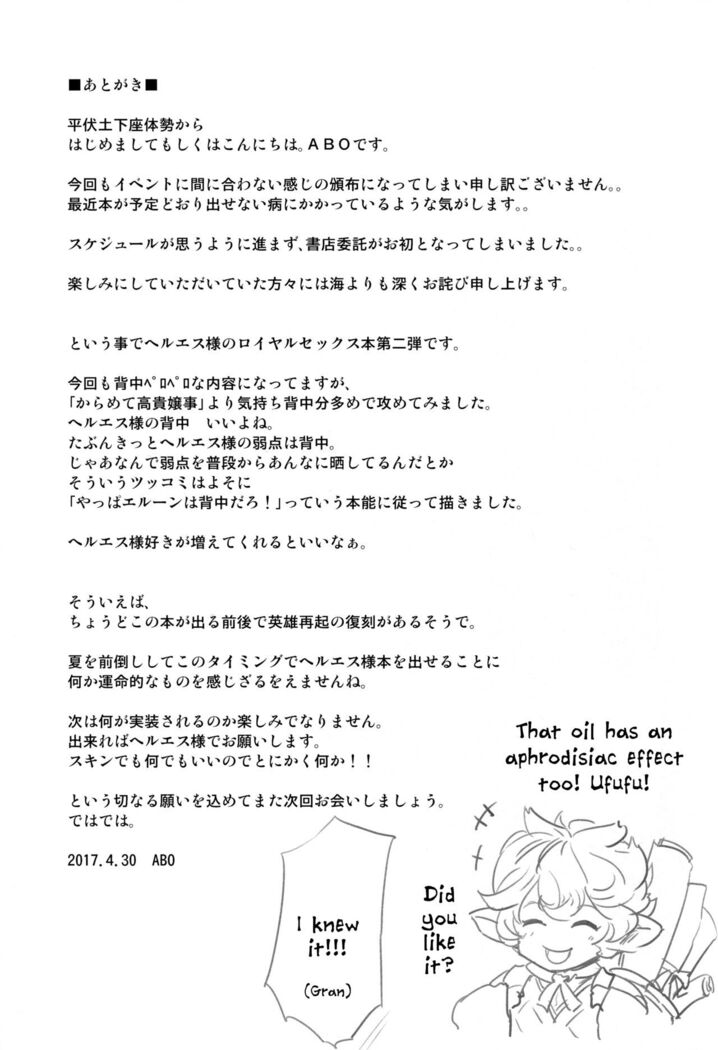 ■あとがき■
平伏土下座体勢から
はじめましてもしくはこんにちは。ＡＢＯです。
今回もイベントに間に合わない感じの頒布になってしまい申し訳ございません。。
最近本が予定どおり出せない病にかかっているような気がします。。
スケジュールが思うように進まず、書店委託がお初となってしまいました。。
楽しみにしていただいていた方々には海よりも深くお詫び申し上げます。
という事でヘルエス様のロイヤルセックス本第二弾です。
今回も背中ﾍﾟﾛﾍﾟﾛな内容になってますが、
「からめて高貴嬢事」より気持ち背中分多めで攻めてみました。
ヘルエス様の背中　いいよね。
たぶんきっとヘルエス様の弱点は背中。
じゃあなんで弱点を普段からあんなに晒してるんだとか
そういうツッコミはよそに
「やっぱエルーンは背中だろ！」っていう本能に従って描きました。
ヘルエス様好きが増えてくれるといいなぁ。
そういえば、
ちょうどこの本が出る前後で英雄再起の復刻があるそうで。
夏を前倒ししてこのタイミングでヘルエス様本を出せることに
何か運命的なものを感じざるをえませんね。
次は何が実装されるのか楽しみでなりません。
出来ればヘルエス様でお願いします。
スキンでも何でもいいのでとにかく何か！！
という切なる願いを込めてまた次回お会いしましょう。
ではでは。
2017.4.30　ABO
That oil has an
aphrodisiac effect
too! Ufufu!
Did
you
like
it?
I knew
it!!!
(Gran)